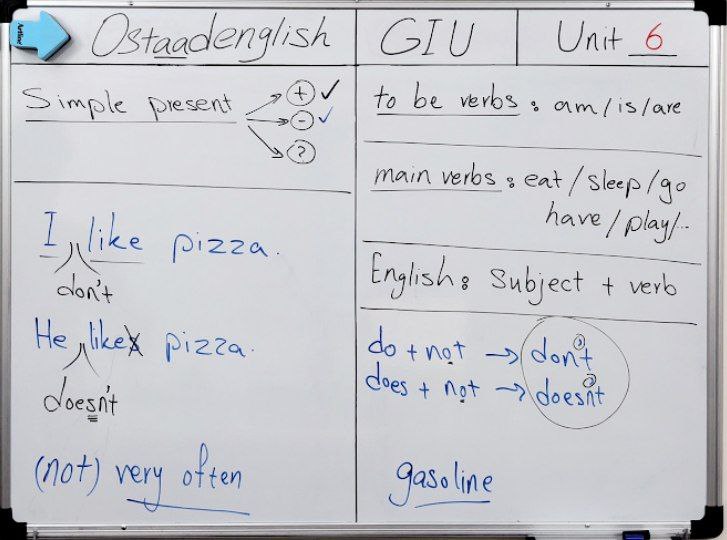 Artline
Ostaadenglish
GIU
Unit 6
Simple present
+ ✓
- ✓
?
I like pizza.
don't
He likes pizza.
doesn't
(not) very often
to be verbs : am/is/are
main verbs : eat/sleep/go
have/play/..
English : Subject + verb
do + not → don't
does + not → doesn't
gasoline